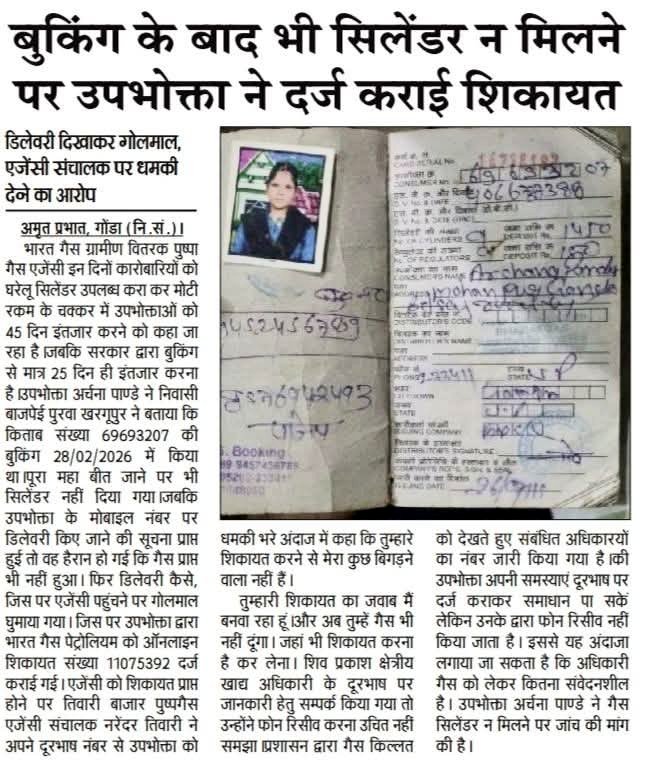 बुकिंग के बाद भी सिलेंडर न मिलने
पर उपभोक्ता ने दर्ज कराई शिकायत
डिलेवरी दिखाकर गोलमाल,
एजेंसी संचालक पर धमकी
देने का आरोप
अमृत प्रभात, गोंडा (नि.सं.)।
भारत गैस ग्रामीण वितरक पुष्पा
गैस एजेंसी इन दिनों कारोबारियों को
घरेलू सिलेंडर उपलब्ध करा कर मोटी
रकम के चक्कर में उपभोक्ताओं को
45 दिन इंतजार करने को कहा जा
रहा है।जबकि सरकार द्वारा बुकिंग
से मात्र 25 दिन ही इंतजार करना
है।उपभोक्ता अर्चना पाण्डे ने निवासी
बाजपेई पुरवा खरगूपुर ने बताया कि
किताब संख्या 69693207 की
बुकिंग 28/02/2026 में किया
था।पूरा महा बीत जाने पर भी
सिलेंडर नहीं दिया गया।जबकि
उपभोक्ता के मोबाइल नंबर पर
डिलेवरी किए जाने की सूचना प्राप्त
हुई तो वह हैरान हो गई कि गैस प्राप्त
भी नहीं हुआ। फिर डिलेवरी कैसे,
जिस पर एजेंसी पहुंचने पर गोलमाल
घुमाया गया। जिस पर उपभोक्ता द्वारा
भारत गैस पेट्रोलियम को ऑनलाइन
शिकायत संख्या 11075392 दर्ज
कराई गई। एजेंसी को शिकायत प्राप्त
होने पर तिवारी बाजार पुष्पगैस
एजेंसी संचालक नरेंदर तिवारी ने
अपने दूरभाष नंबर से उपभोक्ता को
CARD SERIAL No.
CONSUMER No.
S.V. No. & DATE
No. OF CYLINDERS
DEPOSIT Rs.
No. OF REGULATORS
DEPOSIT Rs.
CONSUMER'S NAME
ADDRESS
DISTRIBUTOR'S CODE
DISTRIBUTOR'S NAME
ADDRESS
STATE U P
STATE
DISTRIBUTOR'S SIGNATURE
Booking
धमकी भरे अंदाज में कहा कि तुम्हारे
शिकायत करने से मेरा कुछ बिगड़ने
वाला नहीं हैं।
तुम्हारी शिकायत का जवाब मैं
बनवा रहा हूं।और अब तुम्हें गैस भी
नहीं दूंगा। जहां भी शिकायत करना
है कर लेना। शिव प्रकाश क्षेत्रीय
खाद्य अधिकारी के दूरभाष पर
जानकारी हेतु सम्पर्क किया गया तो
उन्होंने फोन रिसीव करना उचित नहीं
समझा।प्रशासन द्वारा गैस किल्लत
को देखते हुए संबंधित अधिकारयों
का नंबर जारी किया गया है।की
उपभोक्ता अपनी समस्याएं दूरभाष पर
दर्ज कराकर समाधान पा सकें
लेकिन उनके द्वारा फोन रिसीव नहीं
किया जाता है। इससे यह अंदाजा
लगाया जा सकता है कि अधिकारी
गैस को लेकर कितना संवेदनशील
है। उपभोक्ता अर्चना पाण्डे ने गैस
सिलेंडर न मिलने पर जांच की मांग
की है।